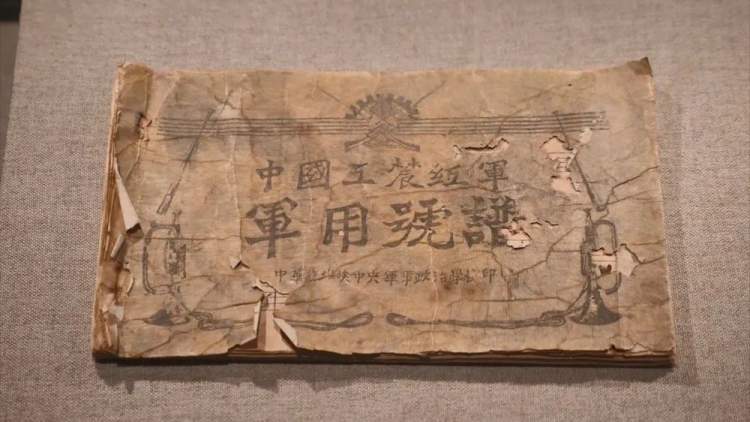 中國工農紅軍
軍用號譜
中華蘇維埃中央軍事政治學校印